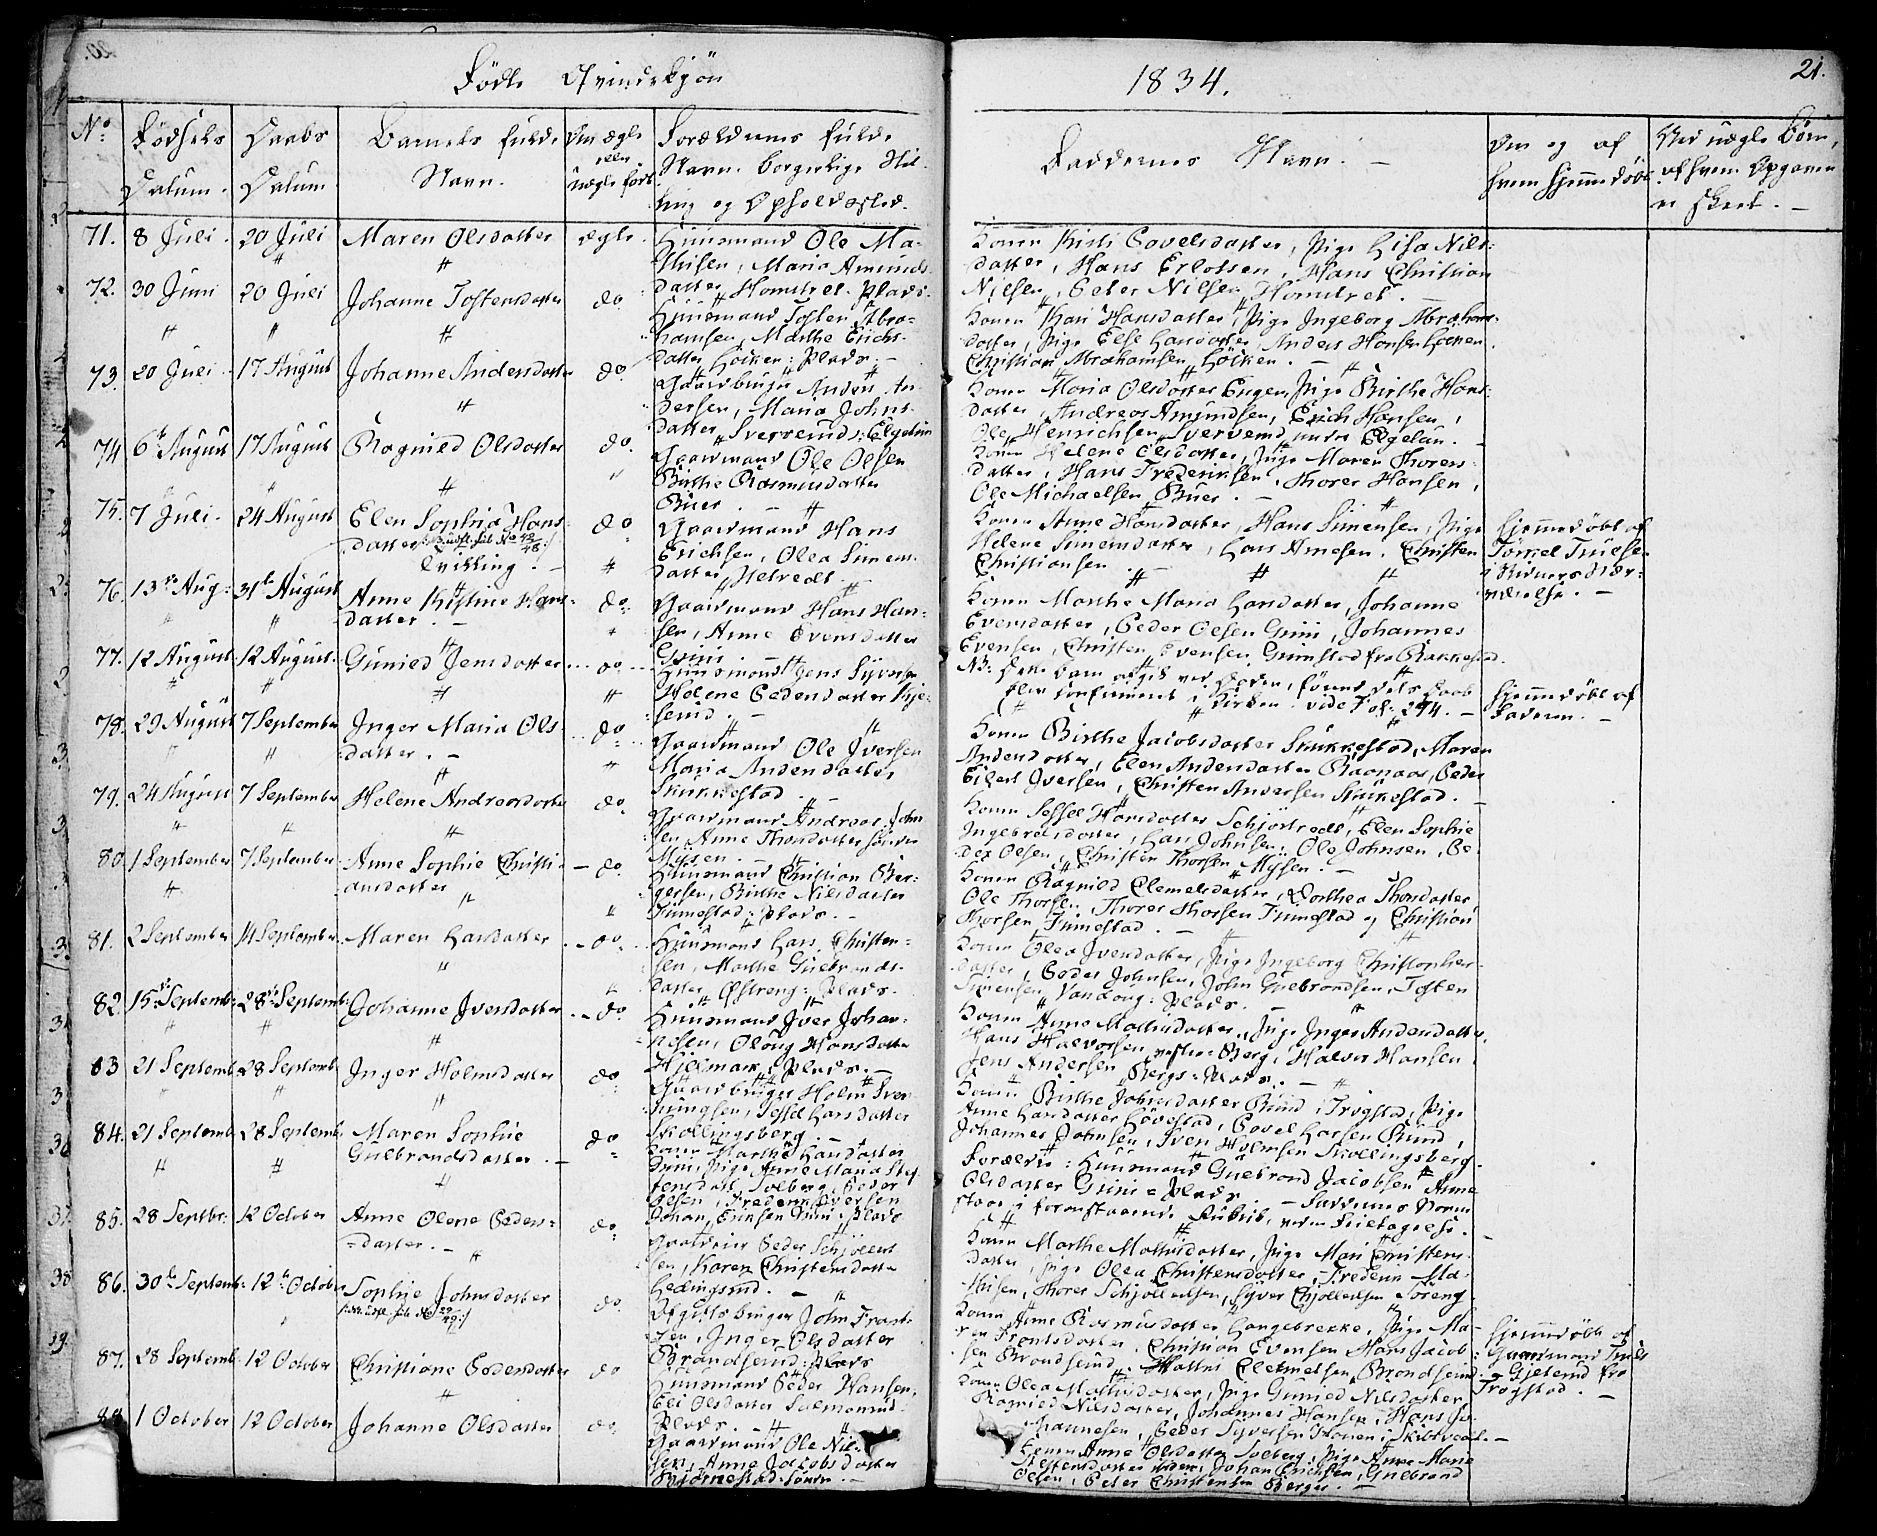 20.
Fødte Qvindekjøn
1834.
21.
No
Fødsels Datum.
Daabs Datum.
Barnets fulde Navn.
Om ægte eller uægte født.
Forældrenes fulde Navn. borgerlige Stilling og Opholdssted.
Faddernes Navn. —
Om og af hvem hjemmedøbt
Ved uægte Børn, af hvem Opgaven er skeet. —
71. 8 Juli. 20 Juli Maren Olsdatter ægte.
Huusmand Ole Ma-
thisen, Maria Amunds-
datter Homstvet. Plads.
Konen Kisti Povelsdatter, Pige Lisa Nils-
datter, Hans Erlofsen, Hans Christian
Nilsen, Peter Nilsen Homstvet. —
72. 30 Juni 20 Juli Johanne Tostensdatter do
Huusmand Tosten Abra-
hamsen, Marthe Erichs-
datter Løcken: Plads. —
Konen Kari Hansdatter, Pige Ingeborg Abraham-
datter, Pige Else Larsdatter, Anders Hansen Løcken.
Christian Abrahamsen Løcken. —
73. 20 Juli 17 August Johanne Andersdatter do
Gaardbruger Anders An-
dersen, Maria Johns-
datter Sververud: Elgetun
Konen Maria Olsdatter Engen, Pige Birthe Hans-
datter, Andreas Amundsen, Erich Hansen,
Ole Henrichsen Sververud under Elgetun. —
74 6te August 17 August Ragnild Olsdatter do.
Gaardmand Ole Olsen
Birthe Rasmusdatter
Buer. —
Konen Helene Olsdatter, Pige Maren Thores-
datter, Hans Frederiksen, Thorer Hansen,
Ole Michaelsen Buer. —
75. 7 Juli. 24 August Elen Sophia Hans-
datter
Tvilling. —
do
Gaardmand Hans
Erichsen, Olea Simens-
datter Helvedt. —
Konen Anne Hansdatter, Hans Simensen, Pige
Helene Simensdatter, Lars Arnesen. Christen
Christiansen —
hjemmedøbt af
Tørkel Truelsen
i Vidners Nær-
værelse. —
76. 13de Aug: 31te August Anne Kistine Hans-
datter. —
do
Gaardmand Hans Han-
sen, Anne Evensdatter
Grini. —
Konen Marthe Maria Larsdatter, Johanne
Evensdatter, Peder Olsen Grini, Johannes
Evensen, Christen Evensen Grimstad fra Rakkestad.
77. 12 August 12 August. Gunild Jensdatter do
Huusmand Jens Syversen
Helene Pedersdatter Kje-
serud. —
NB: dette Barn afgik ved Døden, førend dets Daab
blev confirmeret i Kirken. vide Fol: 274. —
hjemmedøbt af
Faderen. —
78. 29 August 7 September Inger Maria Ols-
datter. —
do
Gaardmand Ole Iversen
Maria Andersdatter
Skukkestad. —
Konen Birthe Jacobsdatter Skukkestad, Maren
Andersdatter, Elen Andersdatter Ragnaas, Peder
Eilert Iversen, Christen Andersen Skukkestad. —
79. 24 August 7 September Helene Andreasdatter do
Gaardmand Andreas John-
sen, Anne Thorsdatter søndre
Mysen. —
Konen Sessel Hansdatter Schjørtvedt, Elen Sophie
Ingebretsdatter, Lars Johnsen, Ole Johnsen, Pe-
der Olsen, Christen Thorsen Mysen. —
80. 1 September 7 September Anne Sophie Christi-
ansdatter
do
Huusmand Christian Bør-
gersen, Birthe Nilsdatter
Trinnestad: Plads. —
Konen Ragnild Clemetsdatter, Dorthea Thorsdatter,
Ole Thorsen, Thorer Thorsen Trinnestad og Christian
Thorsen Trinnestad. —
81. 2 September 14 September Maren Larsdatter do
Huusmand Lars Christen-
sen, Marthe Gulbrands-
datter Østreng: Plads.
Konen Olea Iversdatter, Pige Ingeborg Christopher-
datter, Peder Johnsen, John Gulbrandsen, Tosten
Simensen Vandong: Plads. —
82. 15de Septemb: 28de Septemb: Johanne Iversdatter do
Huusmand Iver Johan-
nesen, Oloug Hansdatter
Hjelmark, Plads. —
Konen Anne Mathisdatter, Pige Inger Andersdatter
Hans Halvorsen vestre Berg, Halvor Hansen,
Jens Andersen Bergs: Plads. —
83 21 Septemb. 28 Septemb. Inger Holmsdatter do
Gaardbruger Holm Sven-
kungsen, Sessel Larsdatter
Skollingsberg. —
Konen Birthe Johnsdatter Rud i Trøgstad, Pige
Anne Larsdatter Løvestad, Povel Larsen Rud,
Johannes Johnsen, Sven Holmsen Skollingsberg.
84. 21 Septemb. 28 Septemb. Maren Sophie
Gulbrandsdatter. —
do
Konen Marthe Larsdatter
Grini, Pige Anne Maria Stef-
fensdatt Solberg, Peder
Olsen, Frederik Iversen
Johan Erichsen Grini: Plads
Forældre: Huusmand Gulbrand Jacobsen Anne
Olsdatter Grini: Plads. — Faddernes Navne
staar i foranstaaende Rubrik, ved en Feiltagelse.
85. 28 Septbr: 12 October Anne Olene Peders-
datter. —
do
Gaardeier Peder Schjølled-
sen, Karen Christensdatter
Hedingsrud. —
Konen Marthe Mathisdatter, Pige Mari Christens-
datter, Pige Olea Christensdatter, Frederik Ma-
thisen, Thorer Schjølledsen, Syver Schjølledsen Foreng.
86. 30te Septemb: 12te Octobr Sophie Johnsdatter do
Afgiftsbruger John Frant-
sen, Inger Olsdatter
Brandserud: Plads
Konen Anne Rasmusdatter Langebrekke, Pige Ma-
ren Frantsdatter, Christian Evensen, Hans Jacob-
sen Brandserud, Mathis Clemetsen Brandserud.
hjemmedøbt af
Gaardmand Truls
Gjelerud fra
Trøgstad. —
87. 28 Septemb: 12 October Christiane Pedersdatter do
Huusmand Peder Hansen,
Eli Olsdatter Salmonrud.
Plads. —
Konen Olea Mathisdatter, Pige Gunild Nilsdatter
Ragnild Nilsdatter, Johannes Hansen, Hans Jo-
hannesen, Peder Syversen Monen i Skibtvedt. —
88. 1 October 12 October Johanne Olsdatter do.
Gaardmand Ole Nil-
sen, Anne Jacobsdatter
Bjørnestad: søndre. —
Konen Anne Olsdatter Solberg, Pige Anne Marie
Steffensdatter ibidem, Johan Erichsen, Gulbrand
Olsen, Peder Christensen Berger. —